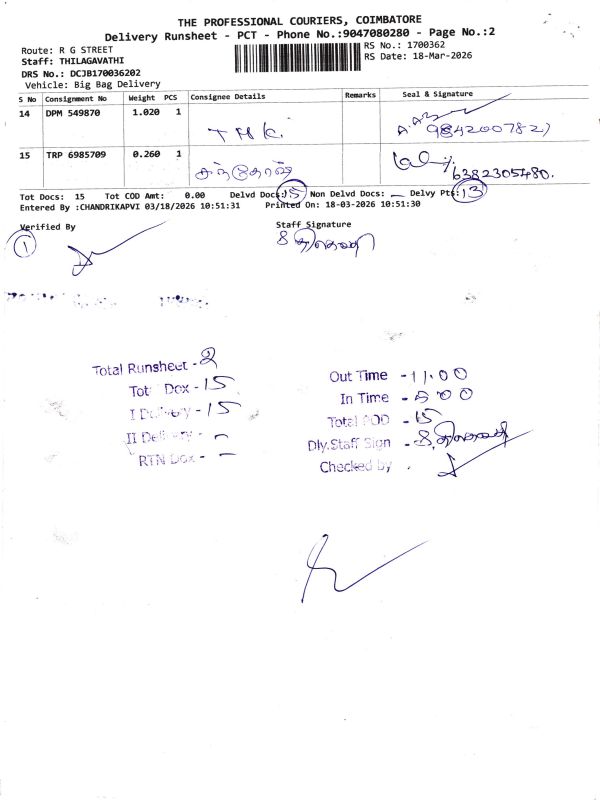 THE PROFESSIONAL COURIERS, COIMBATORE
Delivery Runsheet - PCT - Phone No.:9047080280 - Page No.:2
Route: R G STREET
RS No.: 1700362
Staff: THILAGAVATHI
RS Date: 18-Mar-2026
DRS No.: DCJB170036202
Vehicle: Big Bag Delivery
S No Consignment No Weight PCS Consignee Details Remarks Seal & Signature
14 DPM 549870 1.020 1 T H K. 9842007827
15 TRP 6985709 0.260 1 சந்தோஷ் 6382305480.
Tot Docs: 15 Tot COD Amt: 0.00 Delvd Docs: 15 Non Delvd Docs: — Delvy Pts: 13
Entered By :CHANDRIKAPVI 03/18/2026 10:51:31 Printed On: 18-03-2026 10:51:30
Verified By Staff Signature
1
Total Runsheet - 2
Tot Dox - 15
I Delivery - 15
II Delivery - –
RTN Dox - –
Out Time - 11.00
In Time - 5.00
Total POD - 15
Dly.Staff Sign -
Checked by